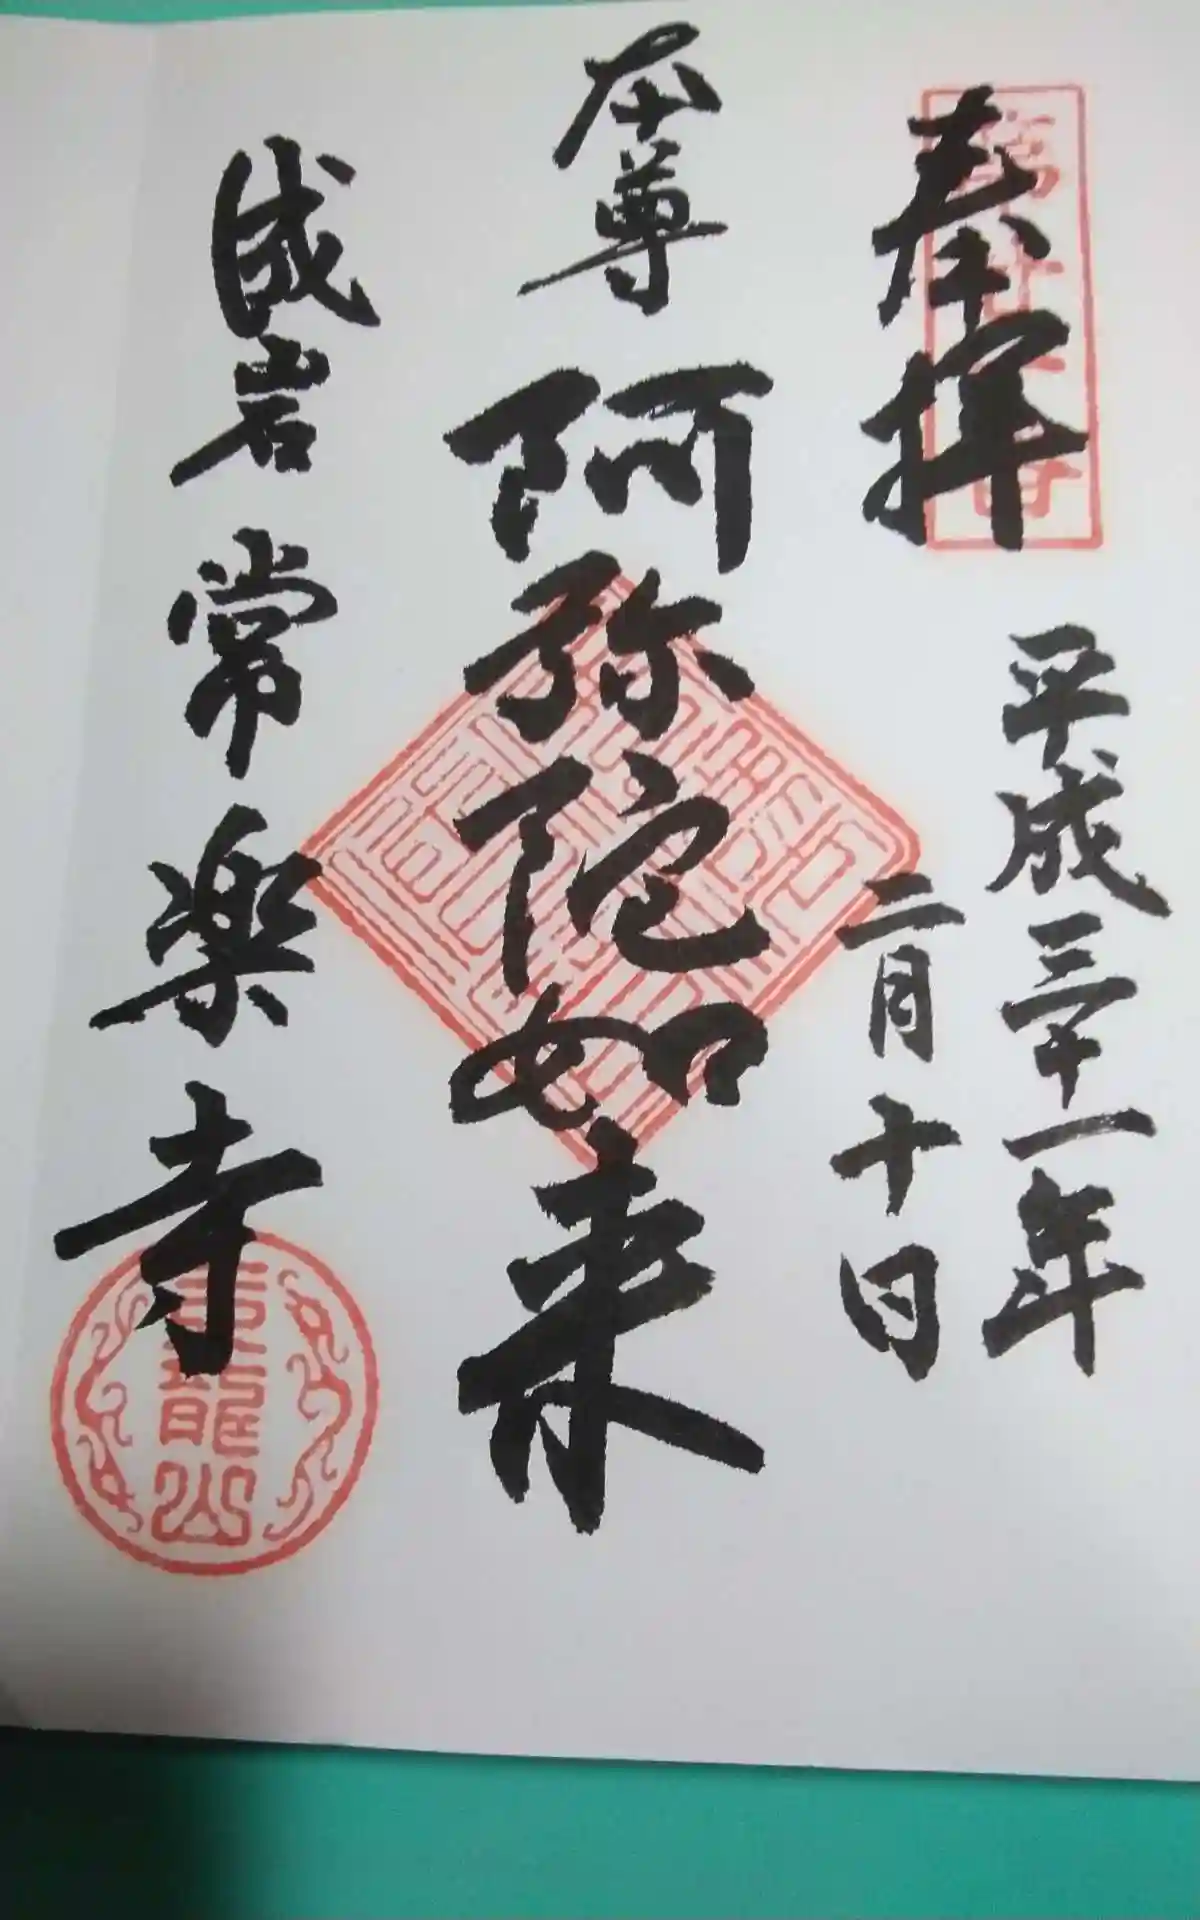 奉拝
平成三十一年
二月十日
本尊 阿弥陀如来
成岩 常楽寺